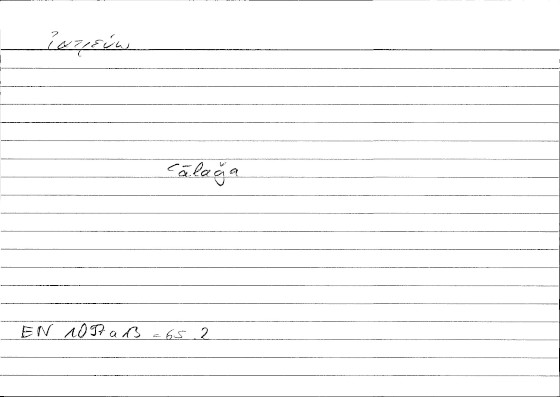 ἰατρεύω
ʿālaǧa
EN 1097a13 = 65.2